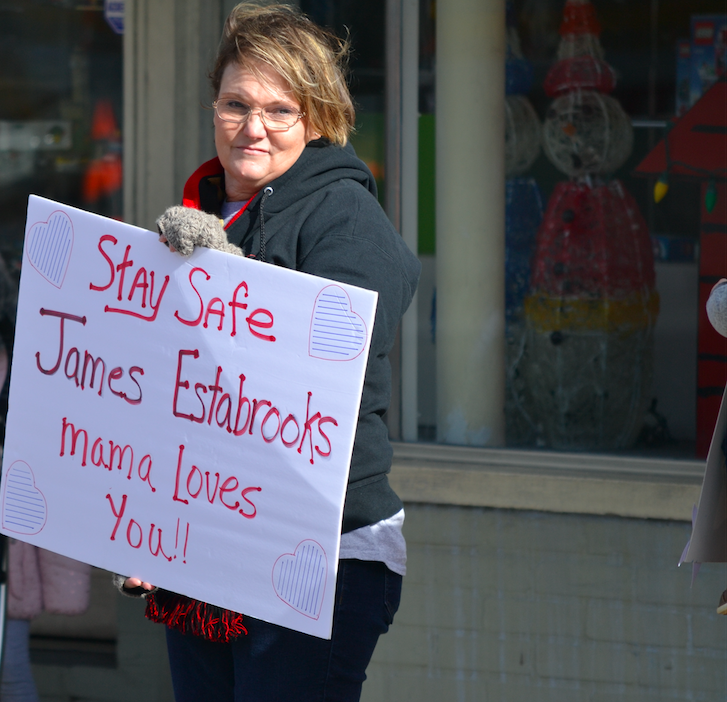 Stay Safe
James Estabrooks
mama Loves
You!!